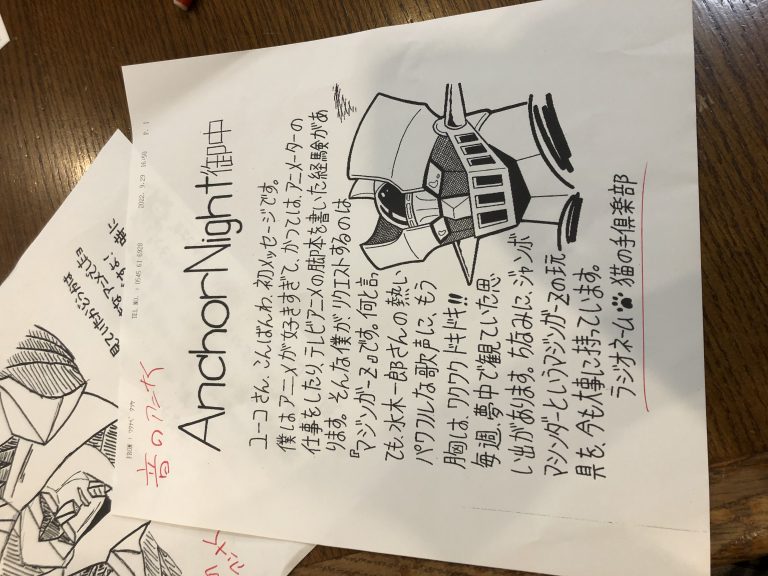 FROM : ワタナベ タクヤ TEL NO. : 0545 61 6928 2022. 9.29 16:50 P. 1
昔のアニメ
Anchor Night御中
ユーコさん、こんばんわ、初メッセージです。
僕は、アニメが好きすぎて、かつては、アニメーターの
仕事をしたり、テレビアニメの脚本を書いた経験があ
ります。そんな僕がリクエストするのは
『マジンガーZ』です。何と言っ
ても、水木一郎さんの熱い
パワフルな歌声に、もう
胸は、ワクワクドキドキ!!
毎週、夢中で観ていた思
い出があります。ちなみに、ジャンボ
マシンダーというマジンガーZの玩
具を、今も大事に持っています。
ラジオネーム 猫の手倶楽部